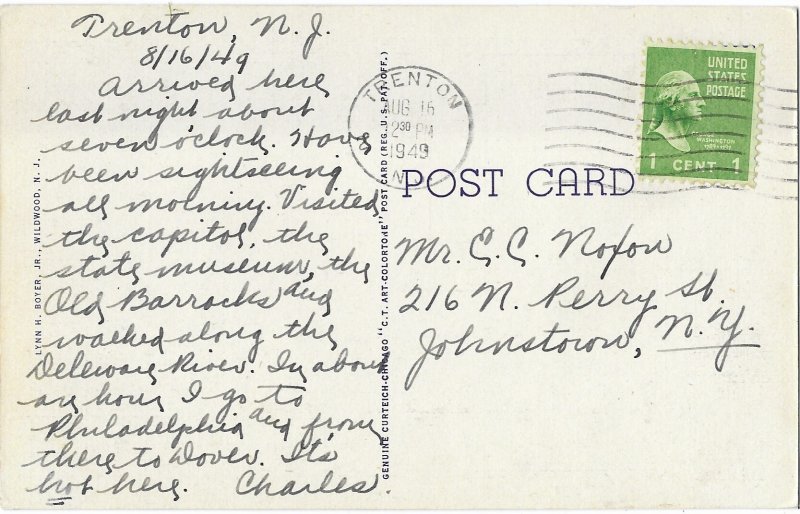 Trenton, N. J.
8/16/49
Arrived here
last night about
seven o'clock. Have
been sightseeing
all morning. Visited
the capitol, the
state museum, the
Old Barracks and
walked along the
Deleware River. In about
an hour I go to
Philadelphia and from
there to Dover. It's
hot here. Charles.
LYNN H. BOYER, JR., WILDWOOD, N. J.
GENUINE CURTEICH-CHICAGO "C.T. ART-COLORTONE" POST CARD (REG. U.S. PAT. OFF.)
TRENTON
AUG 16
2 30 PM
1949
N.J.
UNITED
STATES
POSTAGE
GEORGE
WASHINGTON
1 CENT 1
POST CARD
Mr. C. C. Noxon
216 N. Perry St.
Johnstown, N.Y.